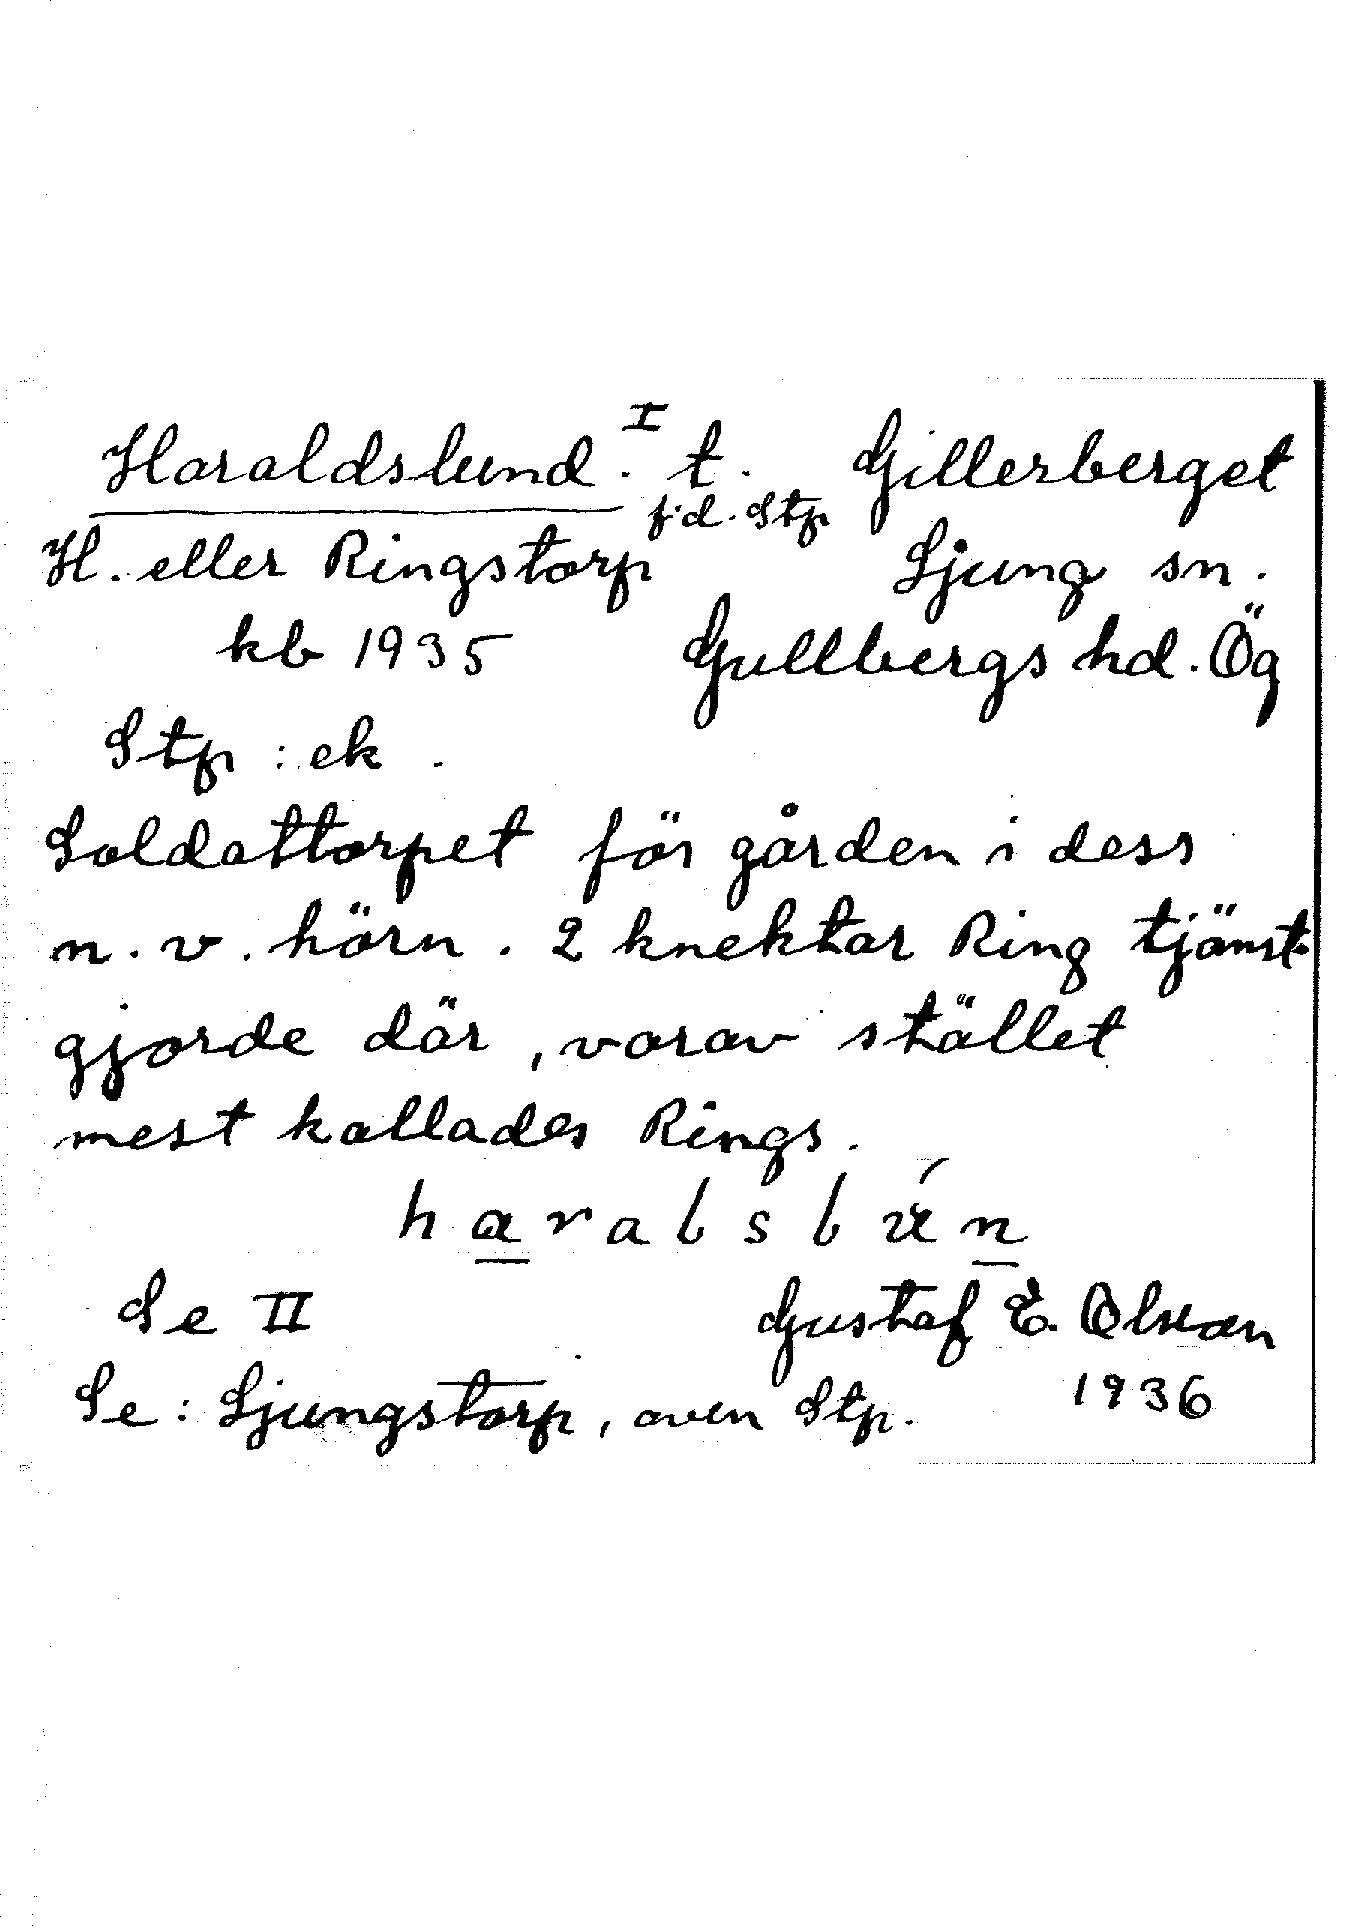 Haraldslund. I t. Gillerberget
H. eller Ringstorp f.d. Stp. Ljung sn.
kb 1935 Gullbergs hd. Ög
Stp : ek.
Soldattorpet för gården i dess
n. v. hörn. 2 knektar Ring tjänst-
gjorde där, varav stället
mest kallades Rings.
Se II Gustaf E. Olsson
Se: Ljungstorp, även Stp. 1936